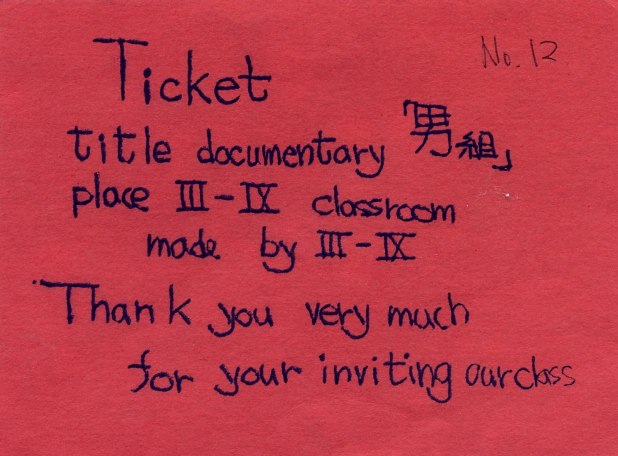 No. 12
Ticket
title documentary 「男組」
place III-IX classroom
made by III-IX
Thank you very much
for your inviting our class